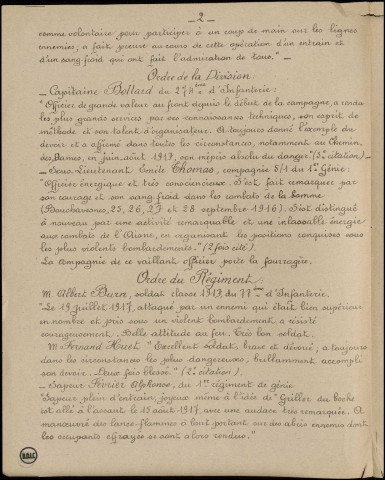 - 2 -
comme volontaire pour participer à un coup de main sur les lignes
ennemies ; a fait preuve au cours de cette opération d'un entrain et
d'un sang froid qui ont fait l'admiration de tous." _
Ordre de la Division :
_ Capitaine Bollard du 274ème d'Infanterie :
"Officier de grande valeur au front depuis le début de la campagne, a rendu
les plus grands services par ses connaissances techniques, son esprit de
méthode et son talent d'organisateur. A toujours donné l'exemple du
devoir et a affirmé dans toutes les circonstances, notamment au Chemin
des Dames, en juin, août 1917, son mépris absolu du danger." (3e citation) _
_ Sous-Lieutenant Emile Thomas, compagnie 5/1 du 1er Génie :
"Officier énergique et très consciencieux. S'est fait remarquer par
son courage et son sang froid dans les combats de la Somme.
(Bouchavesnes, 25, 26, 27 et 28 septembre 1916). S'est distingué
à nouveau par une activité remarquable et une inlassable énergie
aux combats de l'Aisne, en organisant les positions conquises sous
les plus violents bombardements." (2 fois cité).
La compagnie de ce vaillant officier porte la fourragère.
Ordre du Régiment :
M. Albert Burn, soldat classe 1917, du 77ème d'Infanterie.
"Le 19 juillet 1917, attaqué par un ennemi qui était bien supérieur
en nombre et pris sous un violent bombardement a résisté
courageusement. Belle attitude au feu. Très bon soldat.
M. Fernand Huet "Excellent soldat, brave et dévoué ; a toujours
dans les circonstances les plus dangereuses, brillamment accompli
son devoir. Deux fois blessé." (2e citation).
_ Sapeur Février Alphonse, du 1er régiment de génie.
"Sapeur plein d'entrain, joyeux même à l'idée de "Griller du boche"
est allé à l'assaut le 25 août 1917, avec une audace très remarquée. A
manœuvré des lance-flammes à bout portant sur des abris ennemis dont
les occupants effrayés se sont alors rendus."